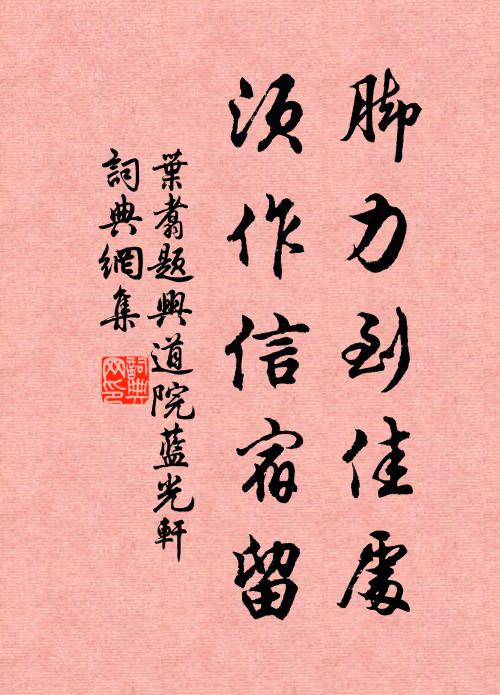 脚力到佳處
須作信宿留
葉翥題興道院藍光軒
詞典網集
詞典網印